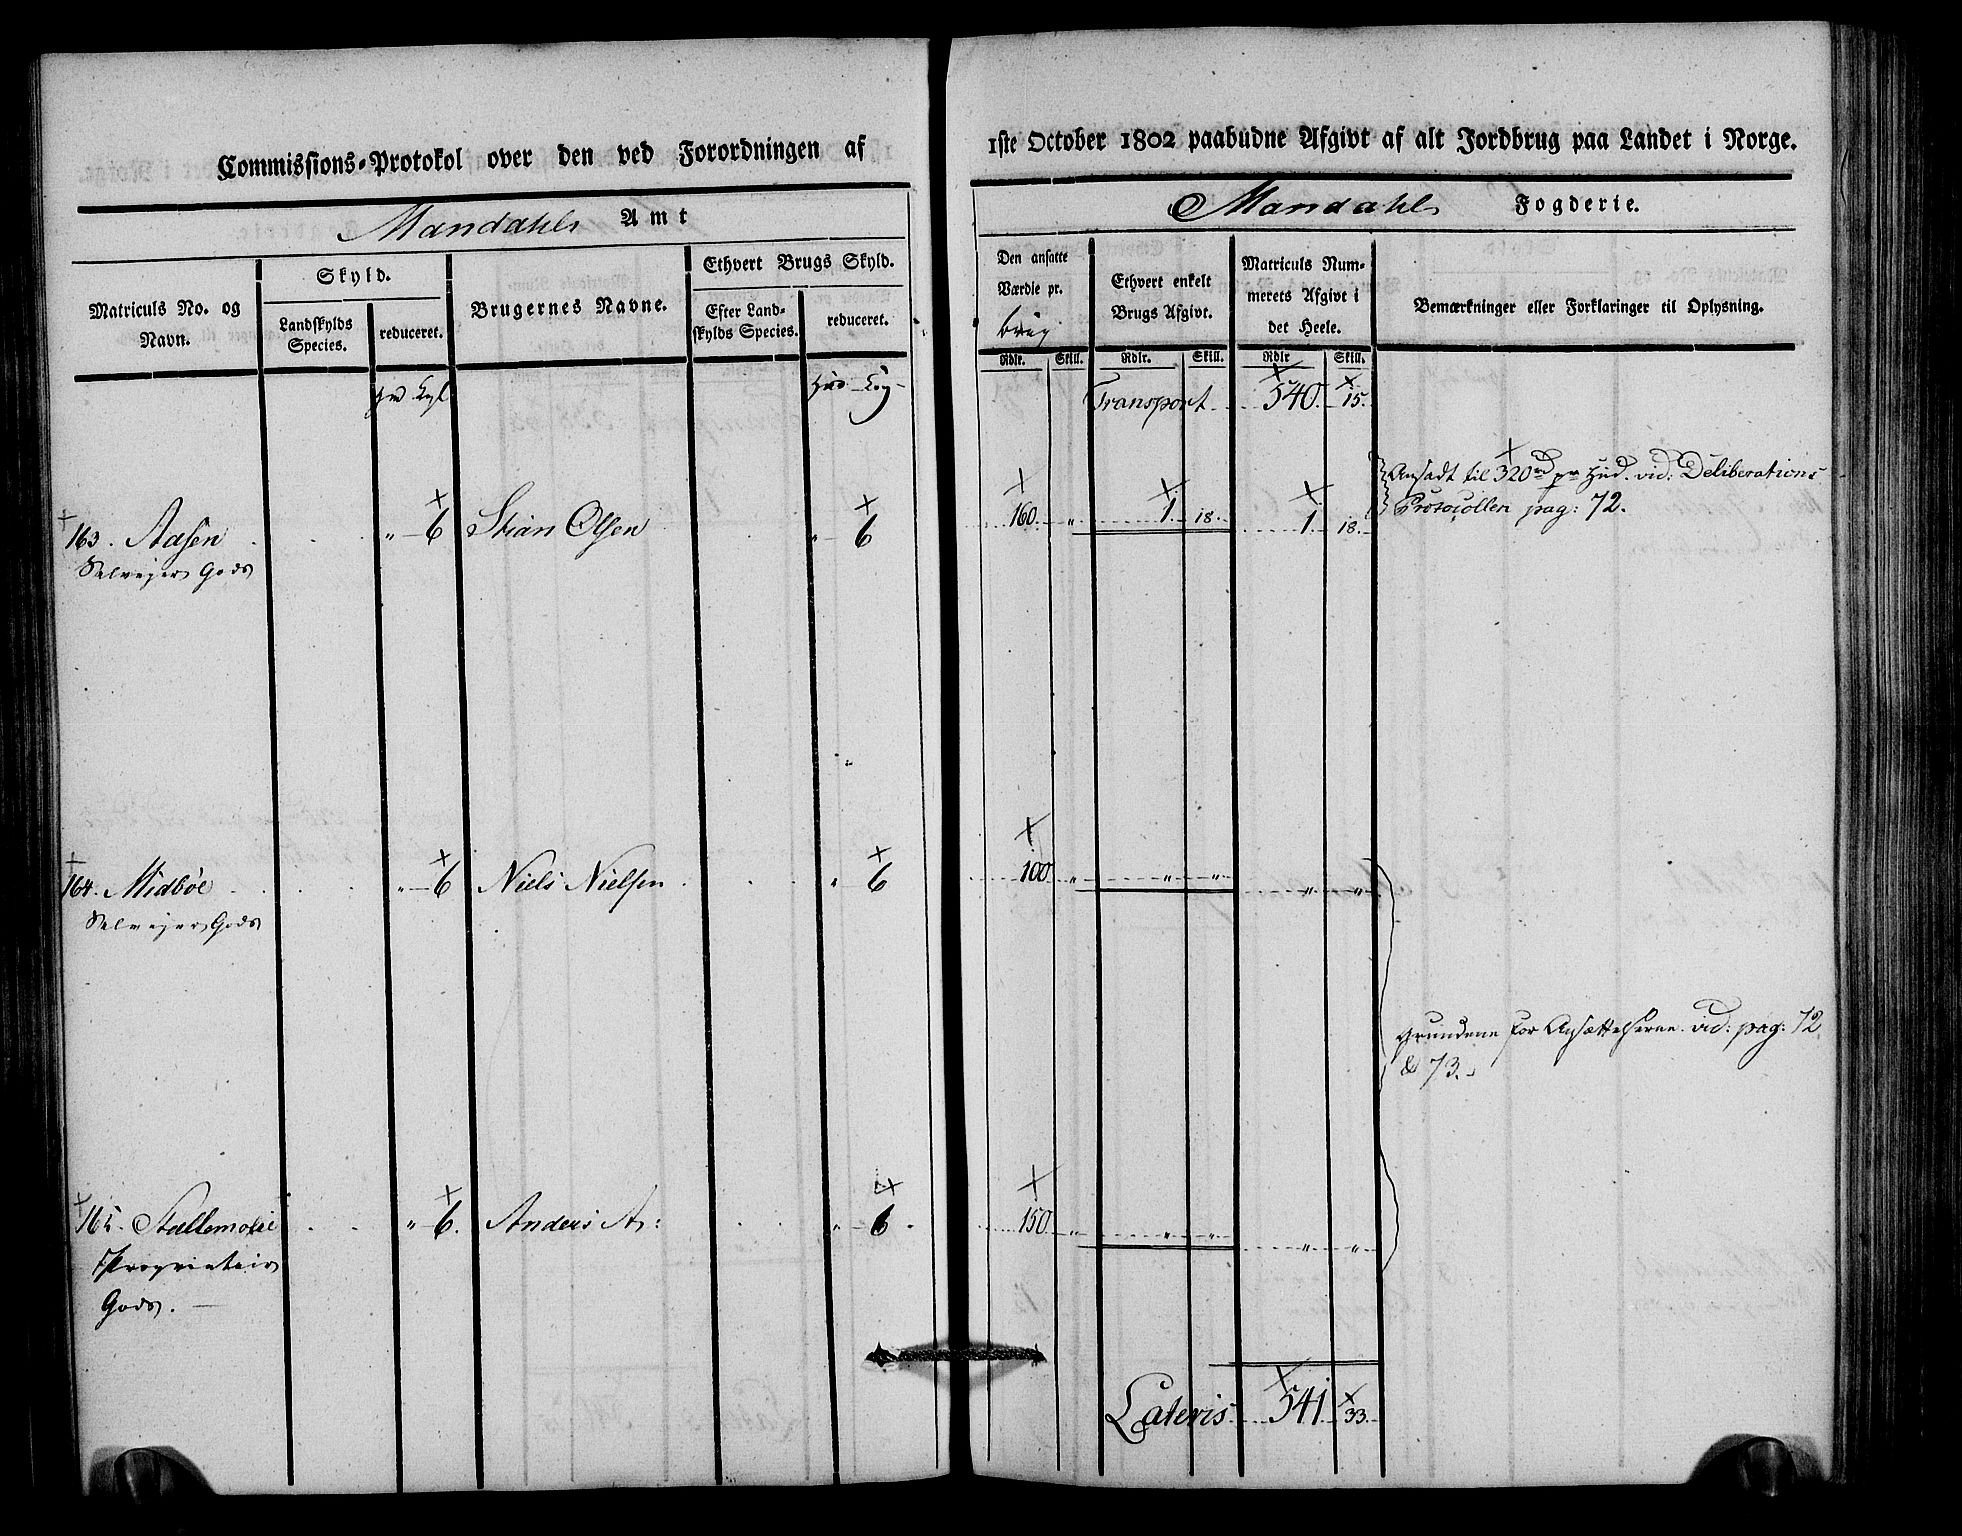 Commissions-Protokol over den ved Forordningen af
Mandahls Amt
Matriculs No. og Navn.
Skyld.
Landskylds Species.
reduceret.
Brugernes Navne.
Ethvert Brugs Skyld.
Efter Landskylds Species.
reduceret.
Hud Kal
Hud - Kag -
163. Aasen " 6 Stian Olsen " 6
Selvejer Gods
164. Midbøe " 6 Niels Nielsen " 6
Selvejer Gods
165. " 6. Anders A: " 6
Proprietair
Gods.
1ste October 1802 paabudne Afgivt af alt Jordbrug paa Landet i Norge.
Mandahls Fogderie.
Den ansatte Værdie pr. brug
Ethvert enkelt Brugs Afgivt.
Matriculs Nummerets Afgivt i det Heele.
Bemærkninger eller Forklaringer til Oplysning.
Rdlr. Skill. Rdlr. Skill. Rdlr Skill.
Transport 540. 15.
Ansadt til 320rd pr Hud. vid: Deliberations
Protocollen pag: 72.
160. " 1. 18. 1. 18.
100 " " " " "
Grundene for Ansættelserne vid: pag: 72
& 73.
150 " " " " "
Lateris 541. 33.